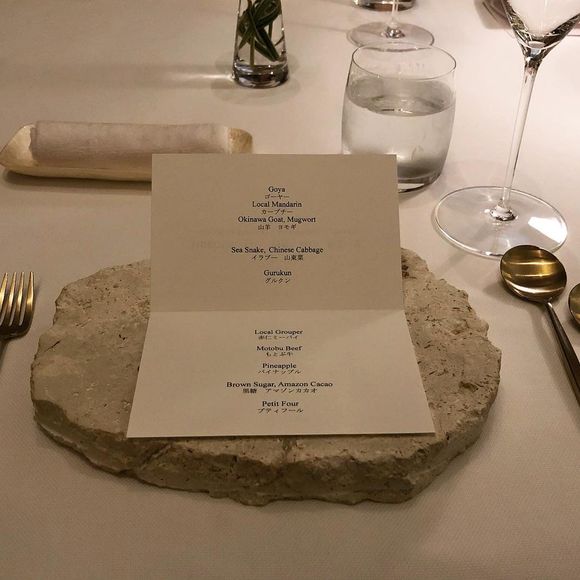 Goya
ゴーヤー
Local Mandarin
カーブチー
Okinawa Goat, Mugwort
山羊　ヨモギ
Sea Snake, Chinese Cabbage
イラブー　山東菜
Gurukun
グルクン
Local Grouper
赤仁ミーバイ
Motobu Beef
もとぶ牛
Pineapple
パイナップル
Brown Sugar, Amazon Cacao
黒糖　アマゾンカカオ
Petit Four
プティフール